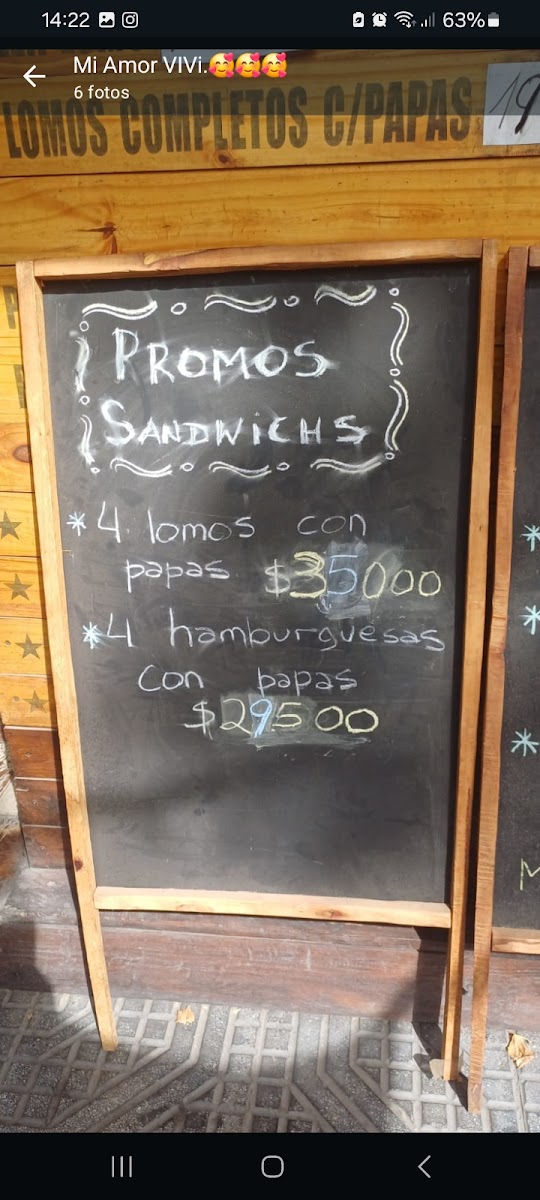 14:22
63%
Mi Amor VIVi.🥰🥰🥰
6 fotos
LOMOS COMPLETOS C/PAPAS
PROMOS
SANDWICHS
*4 lomos con
papas $35000
*4 hamburguesas
con papas
$29500